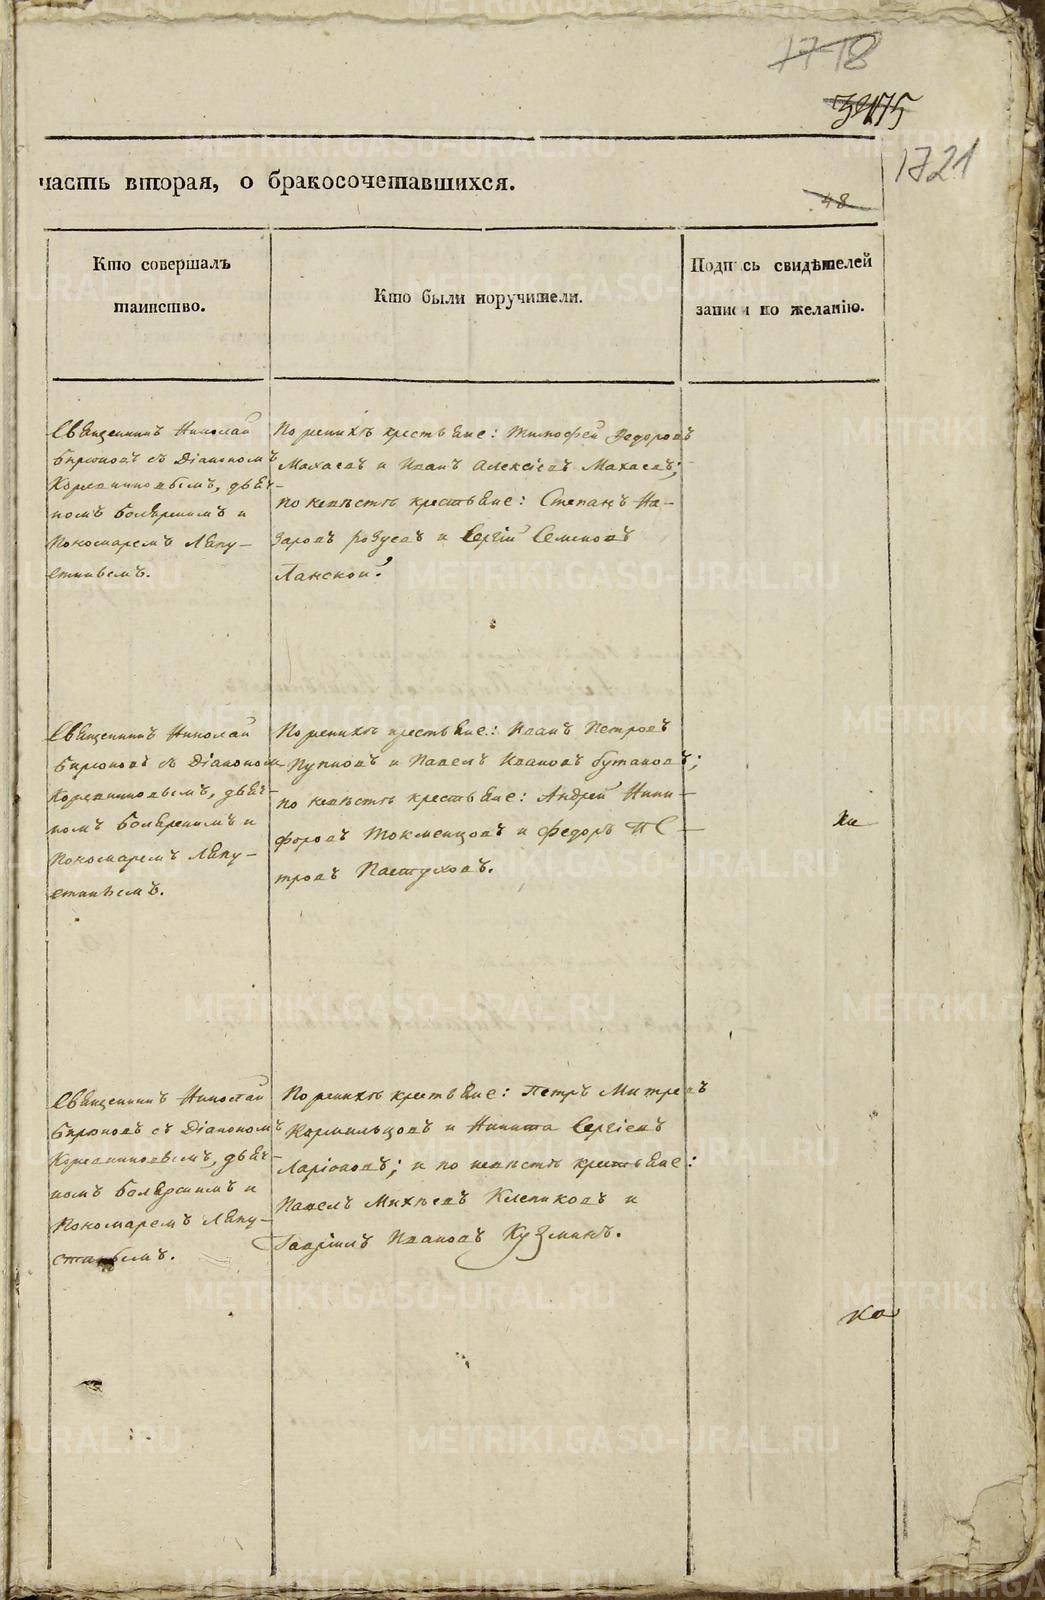 1718
3175
1721
часть вторая, о бракосочетавшихся.
48
Кто совершалъ
таинство.
Кто были поручители.
Подпись свидѣтелей
записи по желанію.
Священникъ Николай
Бирюковъ съ Діакономъ
Коровинковымъ, дьяч-
комъ Боярскимъ и
Пономаремъ Лапу-
стинымъ.
По женихѣ крестьяне: Тимофей Ѳедоровъ
Махаевъ и Иванъ Алексѣевъ Махаевъ;
по невѣстѣ крестьяне: Степанъ На-
заровъ и Сергій Семеновъ
Ланской.
Священникъ Николай
Бирюковъ съ Діакономъ
дьяч-
комъ Боярскимъ и
Пономаремъ Лапу-
стинымъ.
По женихѣ крестьяне: Иванъ Петровъ
Пупковъ и Павелъ Ивановъ Бутаковъ;
по невѣстѣ крестьяне: Андрей Ники-
форовъ Токменцовъ и Федоръ Пе-
тровъ Пастуховъ.
Священникъ Николай
Бирюковъ съ Діакономъ
дьяч-
комъ Боярскимъ и
Пономаремъ Лапу-
стинымъ.
По женихѣ крестьяне: Петръ Митревъ
Кармильцовъ и Никита Сергіевъ
Ларіоновъ; и по невѣстѣ крестьяне:
Павелъ Михѣевъ Клепиковъ и
Гаврiилъ Ивановъ Кузминъ.
METRIKI.GASO-URAL.RU